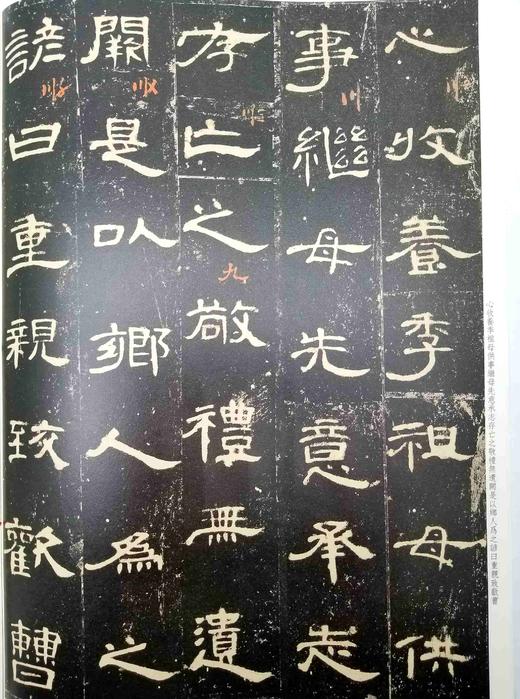 心收養季祖母供
事繼母先意承志
存亡之敬禮無遺
闕是以鄉人為之
諺曰重親致歡曹
九
心收養季祖母供事繼母先意承志存亡之敬禮無遺闕是以鄉人爲之諺曰重親致歡曹